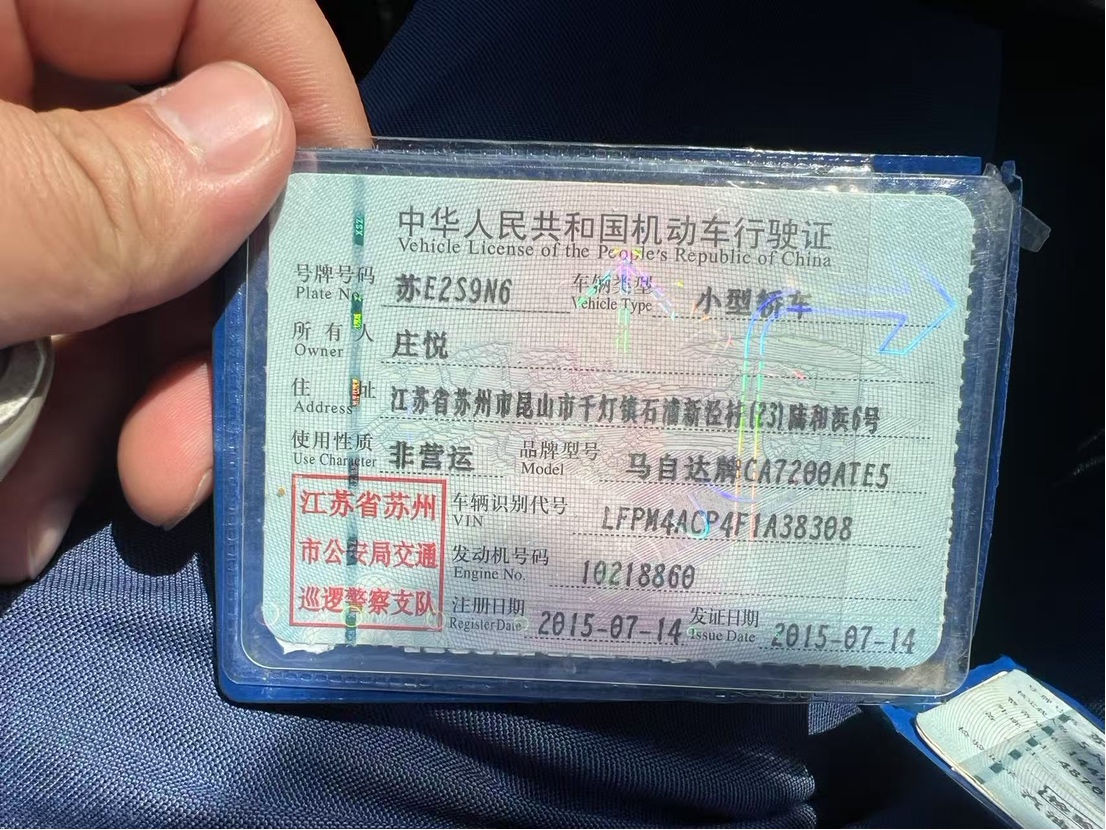 中华人民共和国机动车行驶证
Vehicle License of the People's Republic of China
号牌号码 苏E2S9N6 车辆类型 小型轿车
Plate No. Vehicle Type
所有人 庄悦
Owner
住址 江苏省苏州市昆山市千灯镇石浦新泾村(23)陆和浜6号
Address
使用性质 非营运 品牌型号 马自达牌CA7200ATE5
Use Character Model
江苏省苏州
市公安局交通
巡逻警察支队
车辆识别代号 LFPM4ACP4F1A38308
VIN
发动机号码 10218860
Engine No.
注册日期 2015-07-14 发证日期 2015-07-14
Register Date Issue Date